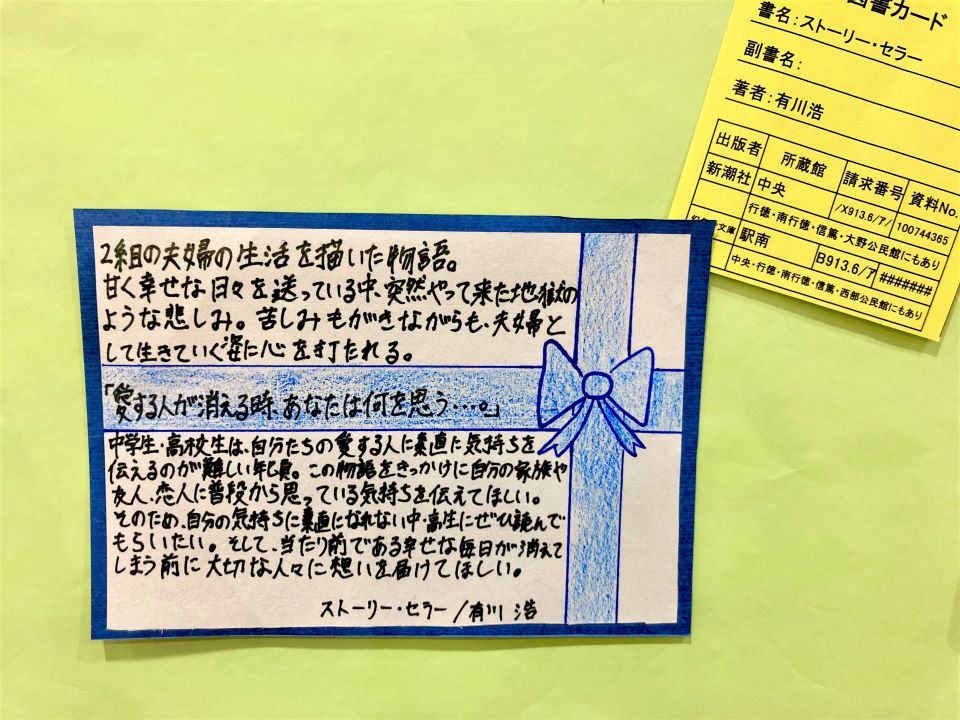 2組の夫婦の生活を描いた物語。
甘く幸せな日々を送っている中、突然やって来た地獄の
ような悲しみ。苦しみもがきながらも、夫婦と
して生きていく姿に心を打たれる。
「愛する人が消える時、あなたは何を思う…。」
中学生・高校生は、自分たちの愛する人に素直に気持ちを
伝えるのが難しい年頃。この物語をきっかけに自分の家族や
友人、恋人に普段から思っている気持ちを伝えてほしい。
そのため、自分の気持ちに素直になれない中・高生にぜひ読んで
もらいたい。そして、当たり前である幸せな毎日が消えて
しまう前に大切な人々に想いを届けてほしい。
ストーリー・セラー/有川 浩
図書カード
書名:ストーリー・セラー
副書名:
著者:有川浩
出版者 所蔵館 請求番号 資料No.
新潮社 中央 /X913.6/ア/ 100744365
行徳・南行徳・信篤・大野公民館にもあり
文庫 駅南 B913.6/ア #######
中央・行徳・南行徳・信篤・西部公民館にもあり